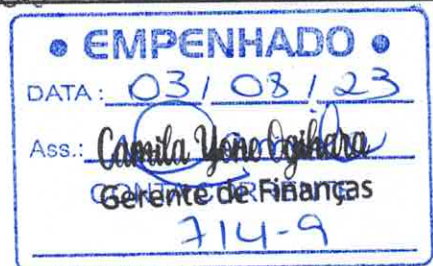 • EMPENHADO •
DATA: 03/08/23
Ass.: Camila Yone Ogihara
Gerente de Finanças
714-9